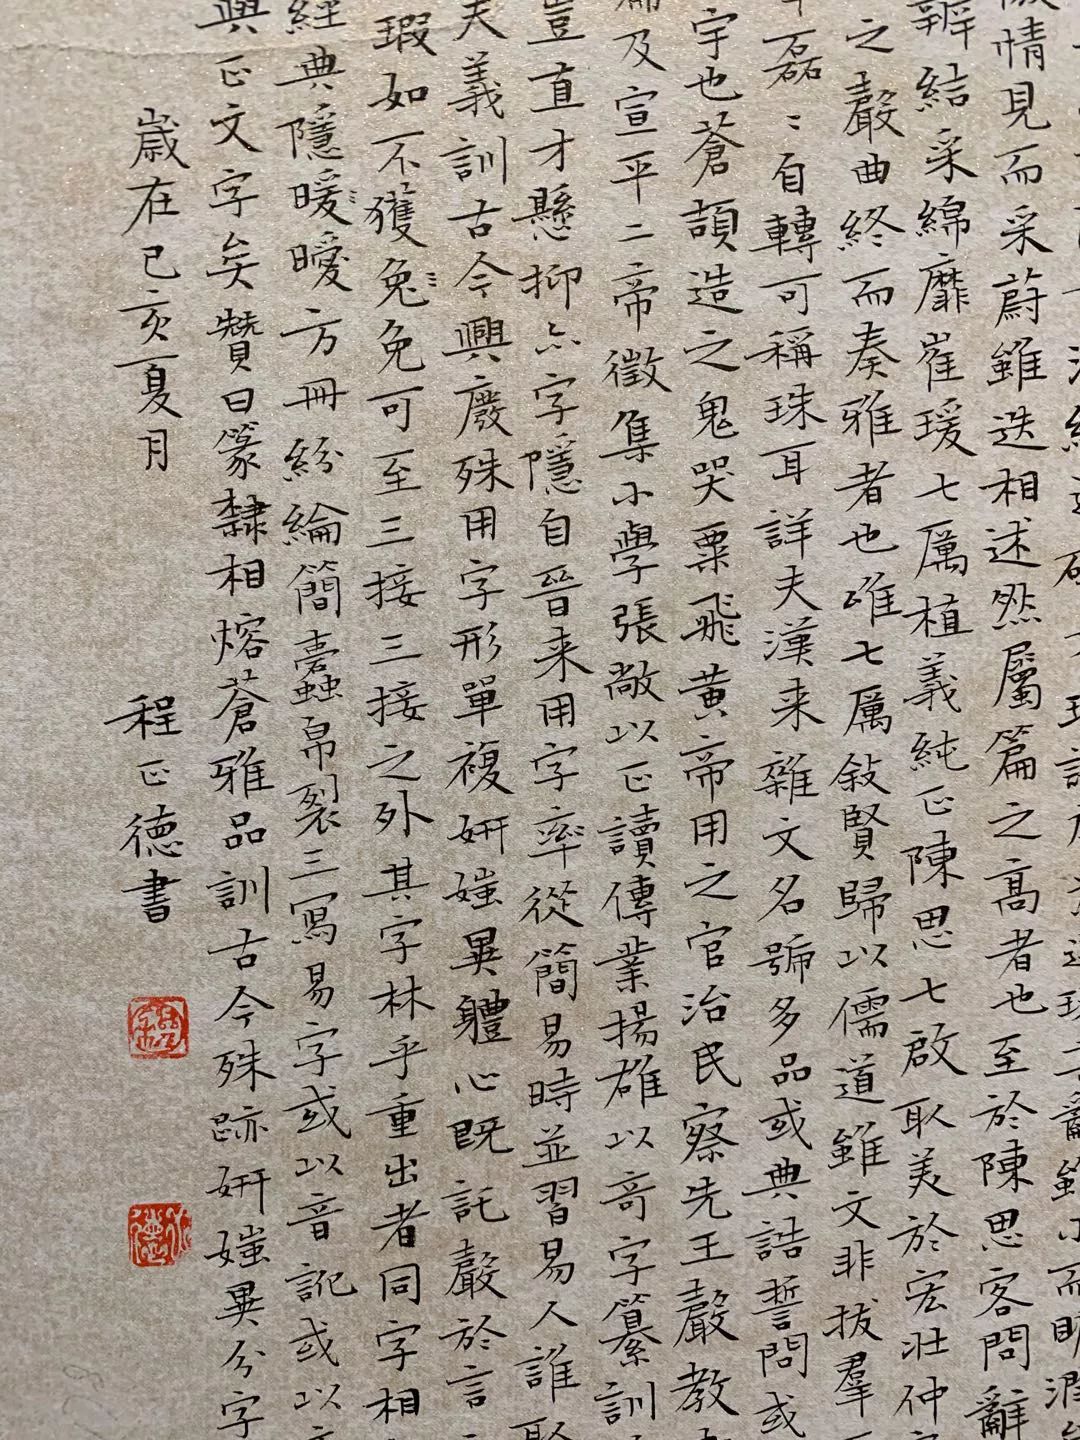 情見而采蔚雖迭相述然屬篇之高者也至於陳思客問辭
辨結采綿靡崔瑗七厲植義純正陳思七啟取美於宏壯仲
之聲曲終而奏雅者也唯七厲敘賢歸以儒道雖文非拔羣
磊〻自轉可稱珠耳詳夫漢来雜文名號多品或典誥誓問或
宇也蒼頡造之鬼哭粟飛黄帝用之官治民察先王聲教
篇及宣平二帝徵集小學張敞以正讀傳業揚雄以奇字纂訓
豈直才懸抑亦字隱自晉来用字率從簡易時並習易人誰
夫義訓古今興廢殊用字形單複妍媸異體心既託聲於言
瑕如不獲兔免可至三接三接之外其字林乎重出者同字相
經典隱曖曖方冊紛綸簡蠹帛裂三寫易字或以音訛或以
興正文字矣贊曰篆隸相熔蒼雅品訓古今殊跡妍媸異分字
歲在己亥夏月 程正德書